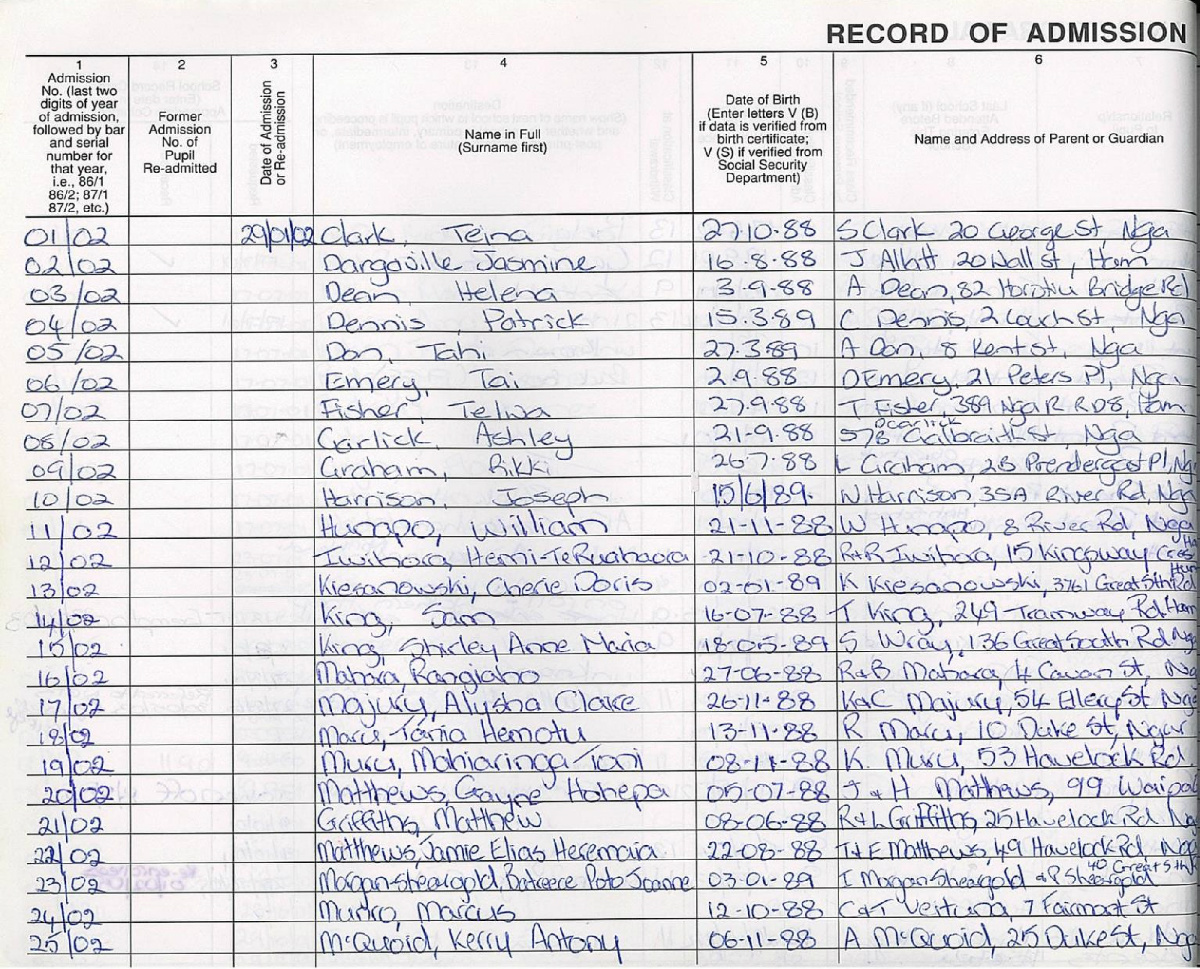 RECORD OF ADMISSION
1 2 3 4 5 6
Admission No. (last two digits of year of admission, followed by bar and serial number for that year, i.e., 86/1 86/2; 87/1 87/2, etc.)
Former Admission No. of Pupil Re-admitted
Date of Admission or Re-admission
Name in Full (Surname first)
Date of Birth (Enter letters V (B) if data is verified from birth certificate; V (S) if verified from Social Security Department)
Name and Address of Parent or Guardian
01/02 29/01/02 Clark, Teina 27-10-88 S Clark 20 George St, Nga
02/02 Dargaville Jasmine 16-8-88 J 20 Wall st, Ham
03/02 Dean, Helena 3-9-88 A Dean, 82 Horotiu Bridge Rd
04/02 Dennis Patrick 15-3-89 C Dennis, 2 St, Nga
05/02 Don, Tahi 27-3-89 A Don, 18 Kent st, Nga
06/02 Emery, Tai 2-9-88 D Emery, 21 Peters Pl, Nga
07/02 Fisher, 27-9-88 T Fisher, 389 Nga R RD8, Ham
08/02 Garlick, Ashley 21-9-88 D Garlick 57B Galbraith St Nga
09/02 Graham, Rikki 26-7-88 L Graham, 25 Prendergast Pl, Ng
10/02 Harrison, Joseph 15/6/89 N Harrison 35A River Rd, Nga
11/02 William 21-11-88 W 8 River Rd, Nga
12/02 21-10-88 R+R 15 Kingsway Cres
13/02 Kiesanowski, Cherie Doris 02-01-89 K Kiesanowski, Great Sth Rd
14/02 King, Sam 16-07-88 T King, 249 Tramway Rd Ham
15/02 King, Shirley Anne Maria 18-05-89 S Wray, 136 Great South Rd Ng
16/02 Mahara Rangiaho 27-06-88 R+B Mahara, 4 Cavan St, Ng
17/02 Majury, Alysha Claire 26-11-88 K+C Majury, 54 Ellery St Nga
18/02 Maru, Tania Hemotu 13-11-88 R Maru, 10 Duke St, Ngar
19/02 Muru, Mahiaringa Toni 08-11-88 K. Muru, 53 Havelock Rd
20/02 Matthews, Gayne Hohepa 05-07-88 J + H Matthews, 99 Waipa
21/02 Griffiths, Matthew 08-06-88 R+L Griffiths, 25 Havelock Rd Ng
22/02 Matthews, Jamie Elias Heremaia 22-08-88 T+E Matthews, 49 Havelock Rd Nga
23/02 Morgan-Sheargold, Poto Joanne 03-01-89 I Morgan Sheargold + R Sheargold 40 Great Sth
24/02 Munro, Marcus 12-10-88 C+T 7 Fairmont St
25/02 McQuoid, Kerry Antony 06-11-88 A McQuoid, 25 Duke St, Nga